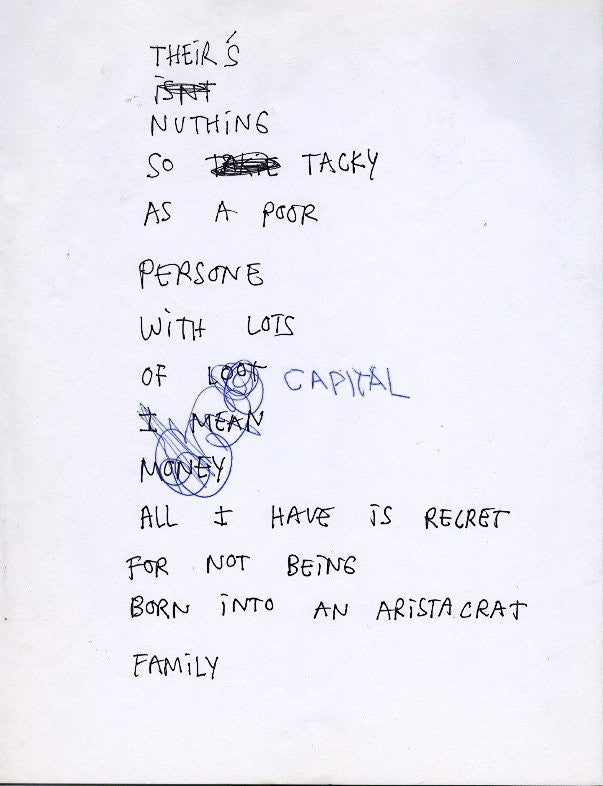 THEIR'S
ISNT
NUTHING
SO TACKY
AS A POOR
PERSONE
WITH LOTS
OF LOOT CAPITAL
I MEAN
MONEY
ALL I HAVE IS REGRET
FOR NOT BEING
BORN INTO AN ARISTACRAT
FAMILY